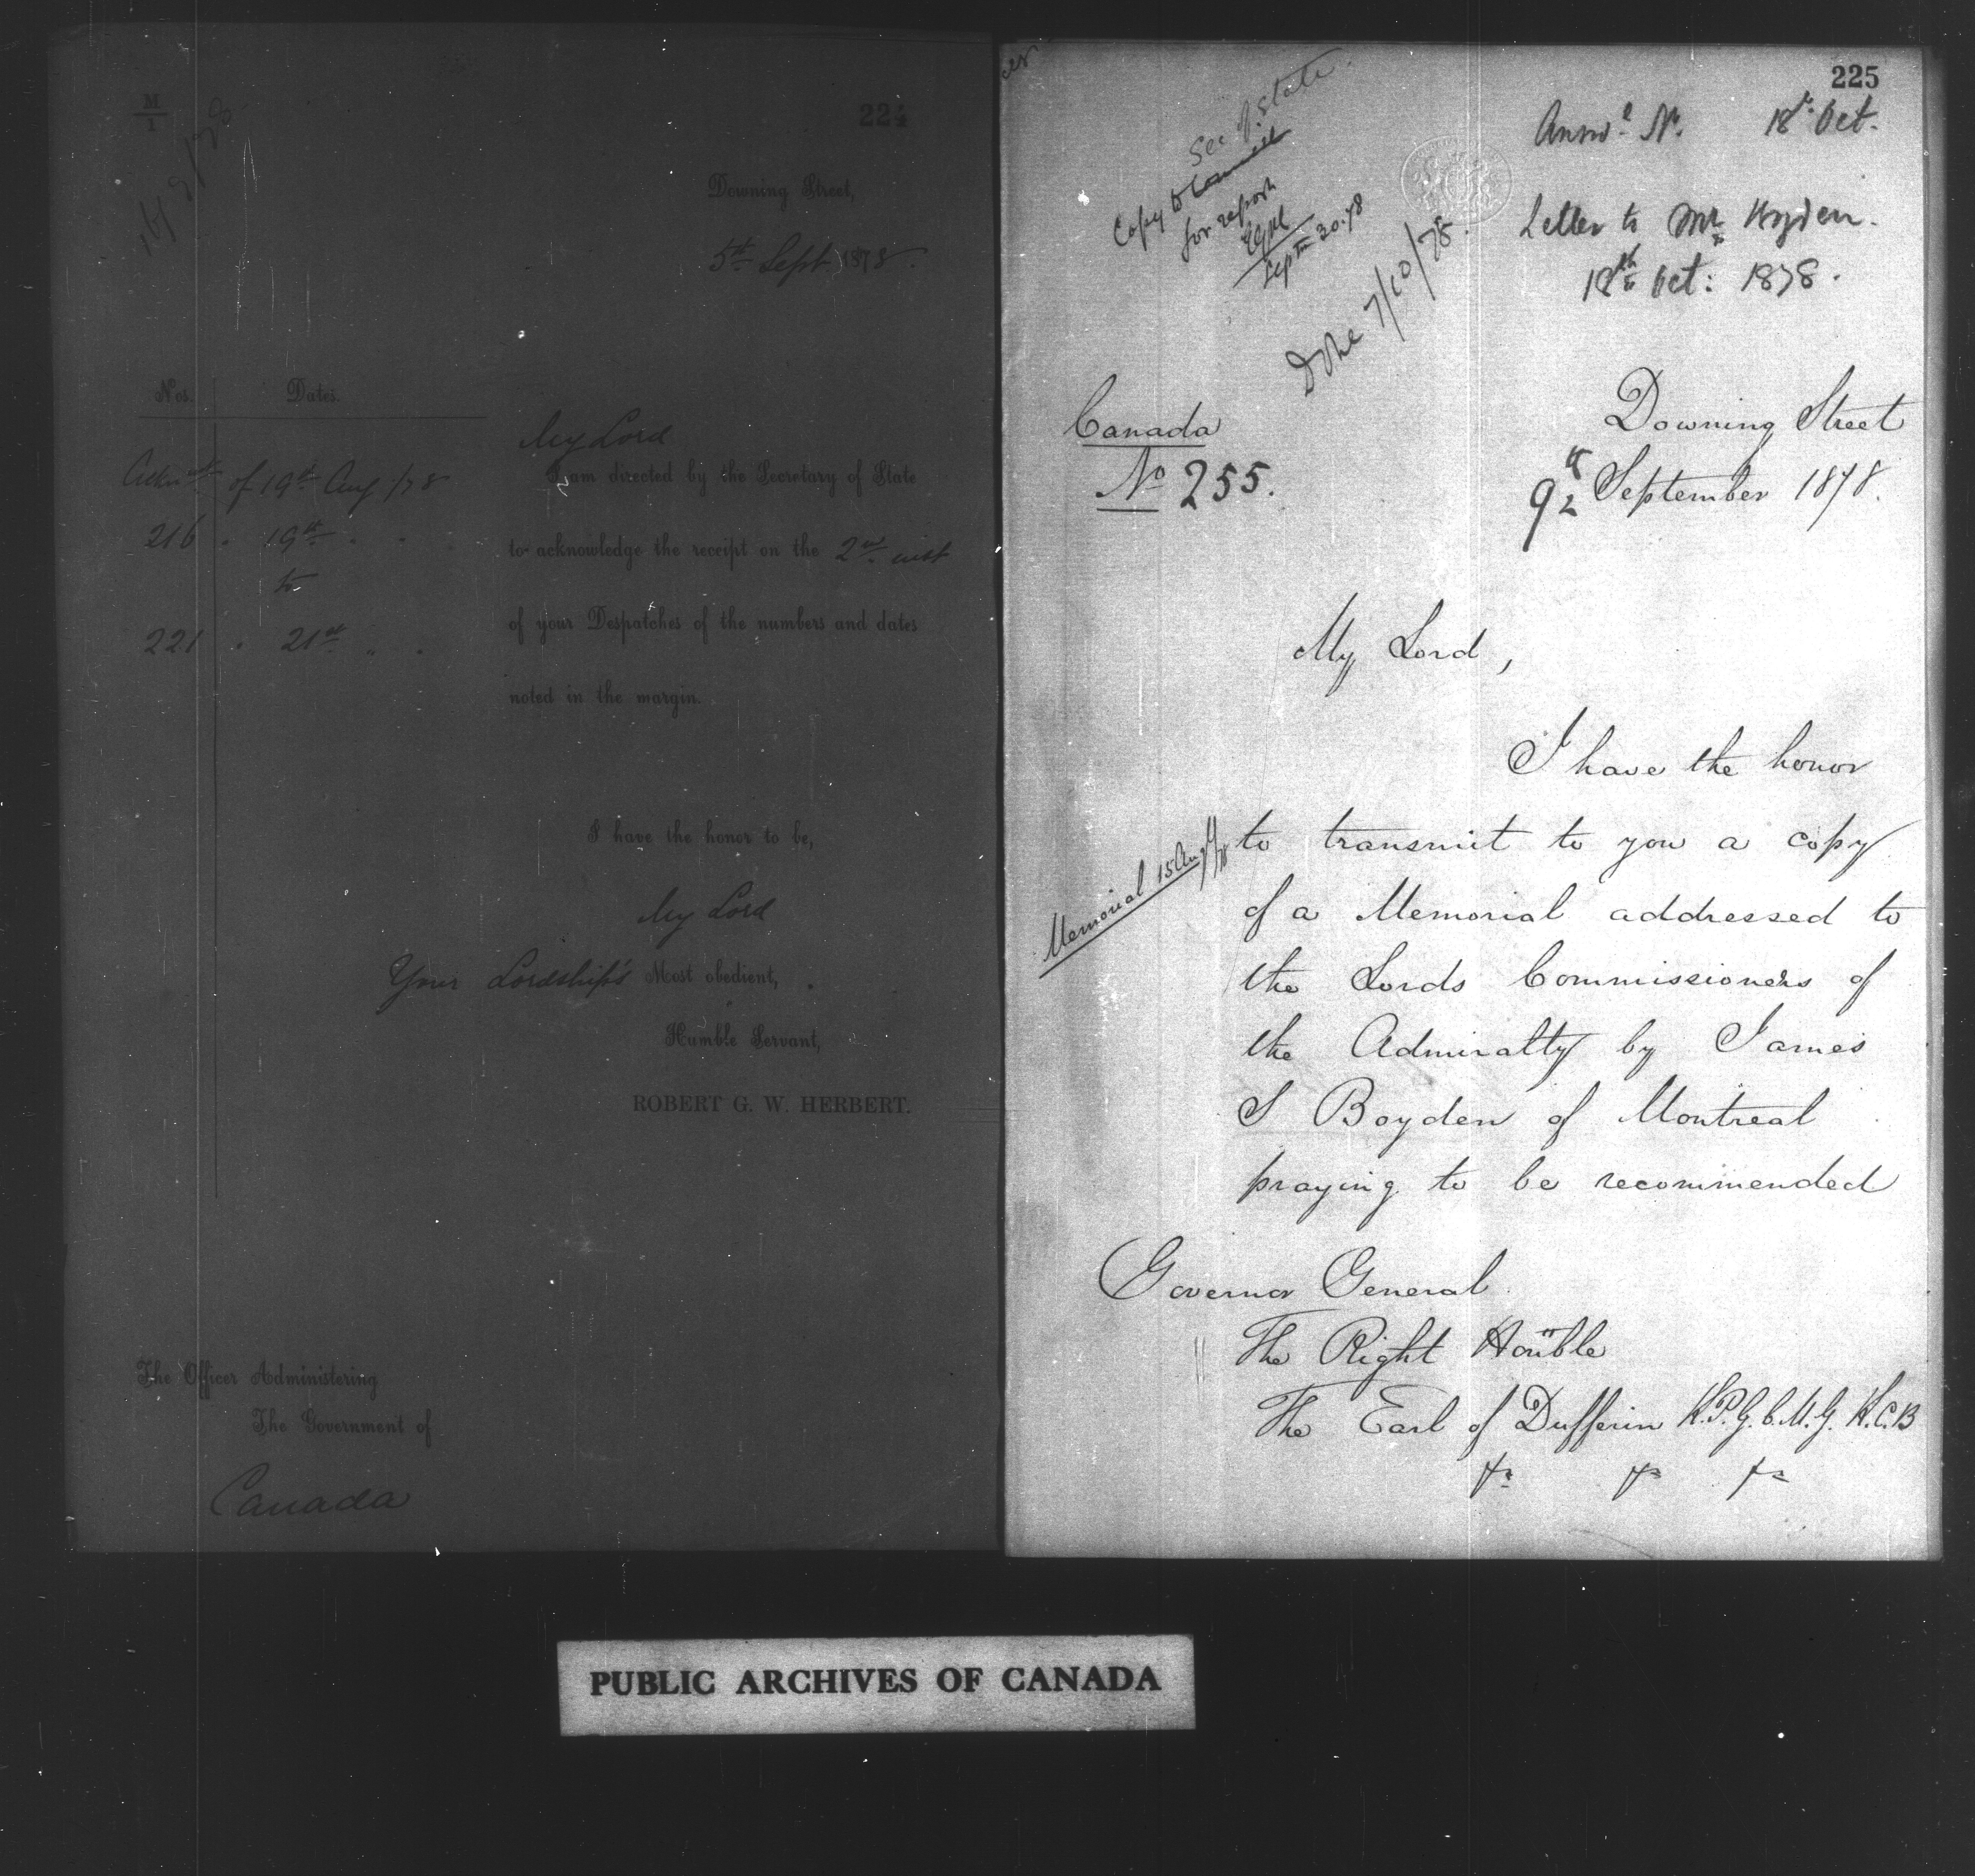 M
1
224
Downing Street,
5th Sept 1878.
Nos. Dates.
of 19th Aug /78
216 " 19th " "
to
221 " 21st " "
My Lord
I am directed by the Secretary of State
to acknowledge the receipt on the 2nd inst
of your Despatches of the numbers and dates
noted in the margin.
I have the honor to be,
My Lord
Your Lordship's Most obedient,
Humble Servant,
ROBERT G. W. HERBERT.
The Officer Administering
The Government of
Canada
225
Answd No. 18th Oct.
Letter to Mr
18th Oct: 1878.
Sec of State
Copy to Council
for report
Septr 30.78
Done 7/10/78.
Canada
No 255.
Downing Street
9th September 1878.
My Lord,
I have the honor
Memorial 15 Augt/78
to transmit to you a copy
of a Memorial addressed to
the Lords Commissioners of
the Admiralty by James
S Boyden of Montreal
praying to be recommended
Governor General
The Right Honble
The Earl of Dufferin K.P. G.C.M.G. K.C.B
PUBLIC ARCHIVES OF CANADA